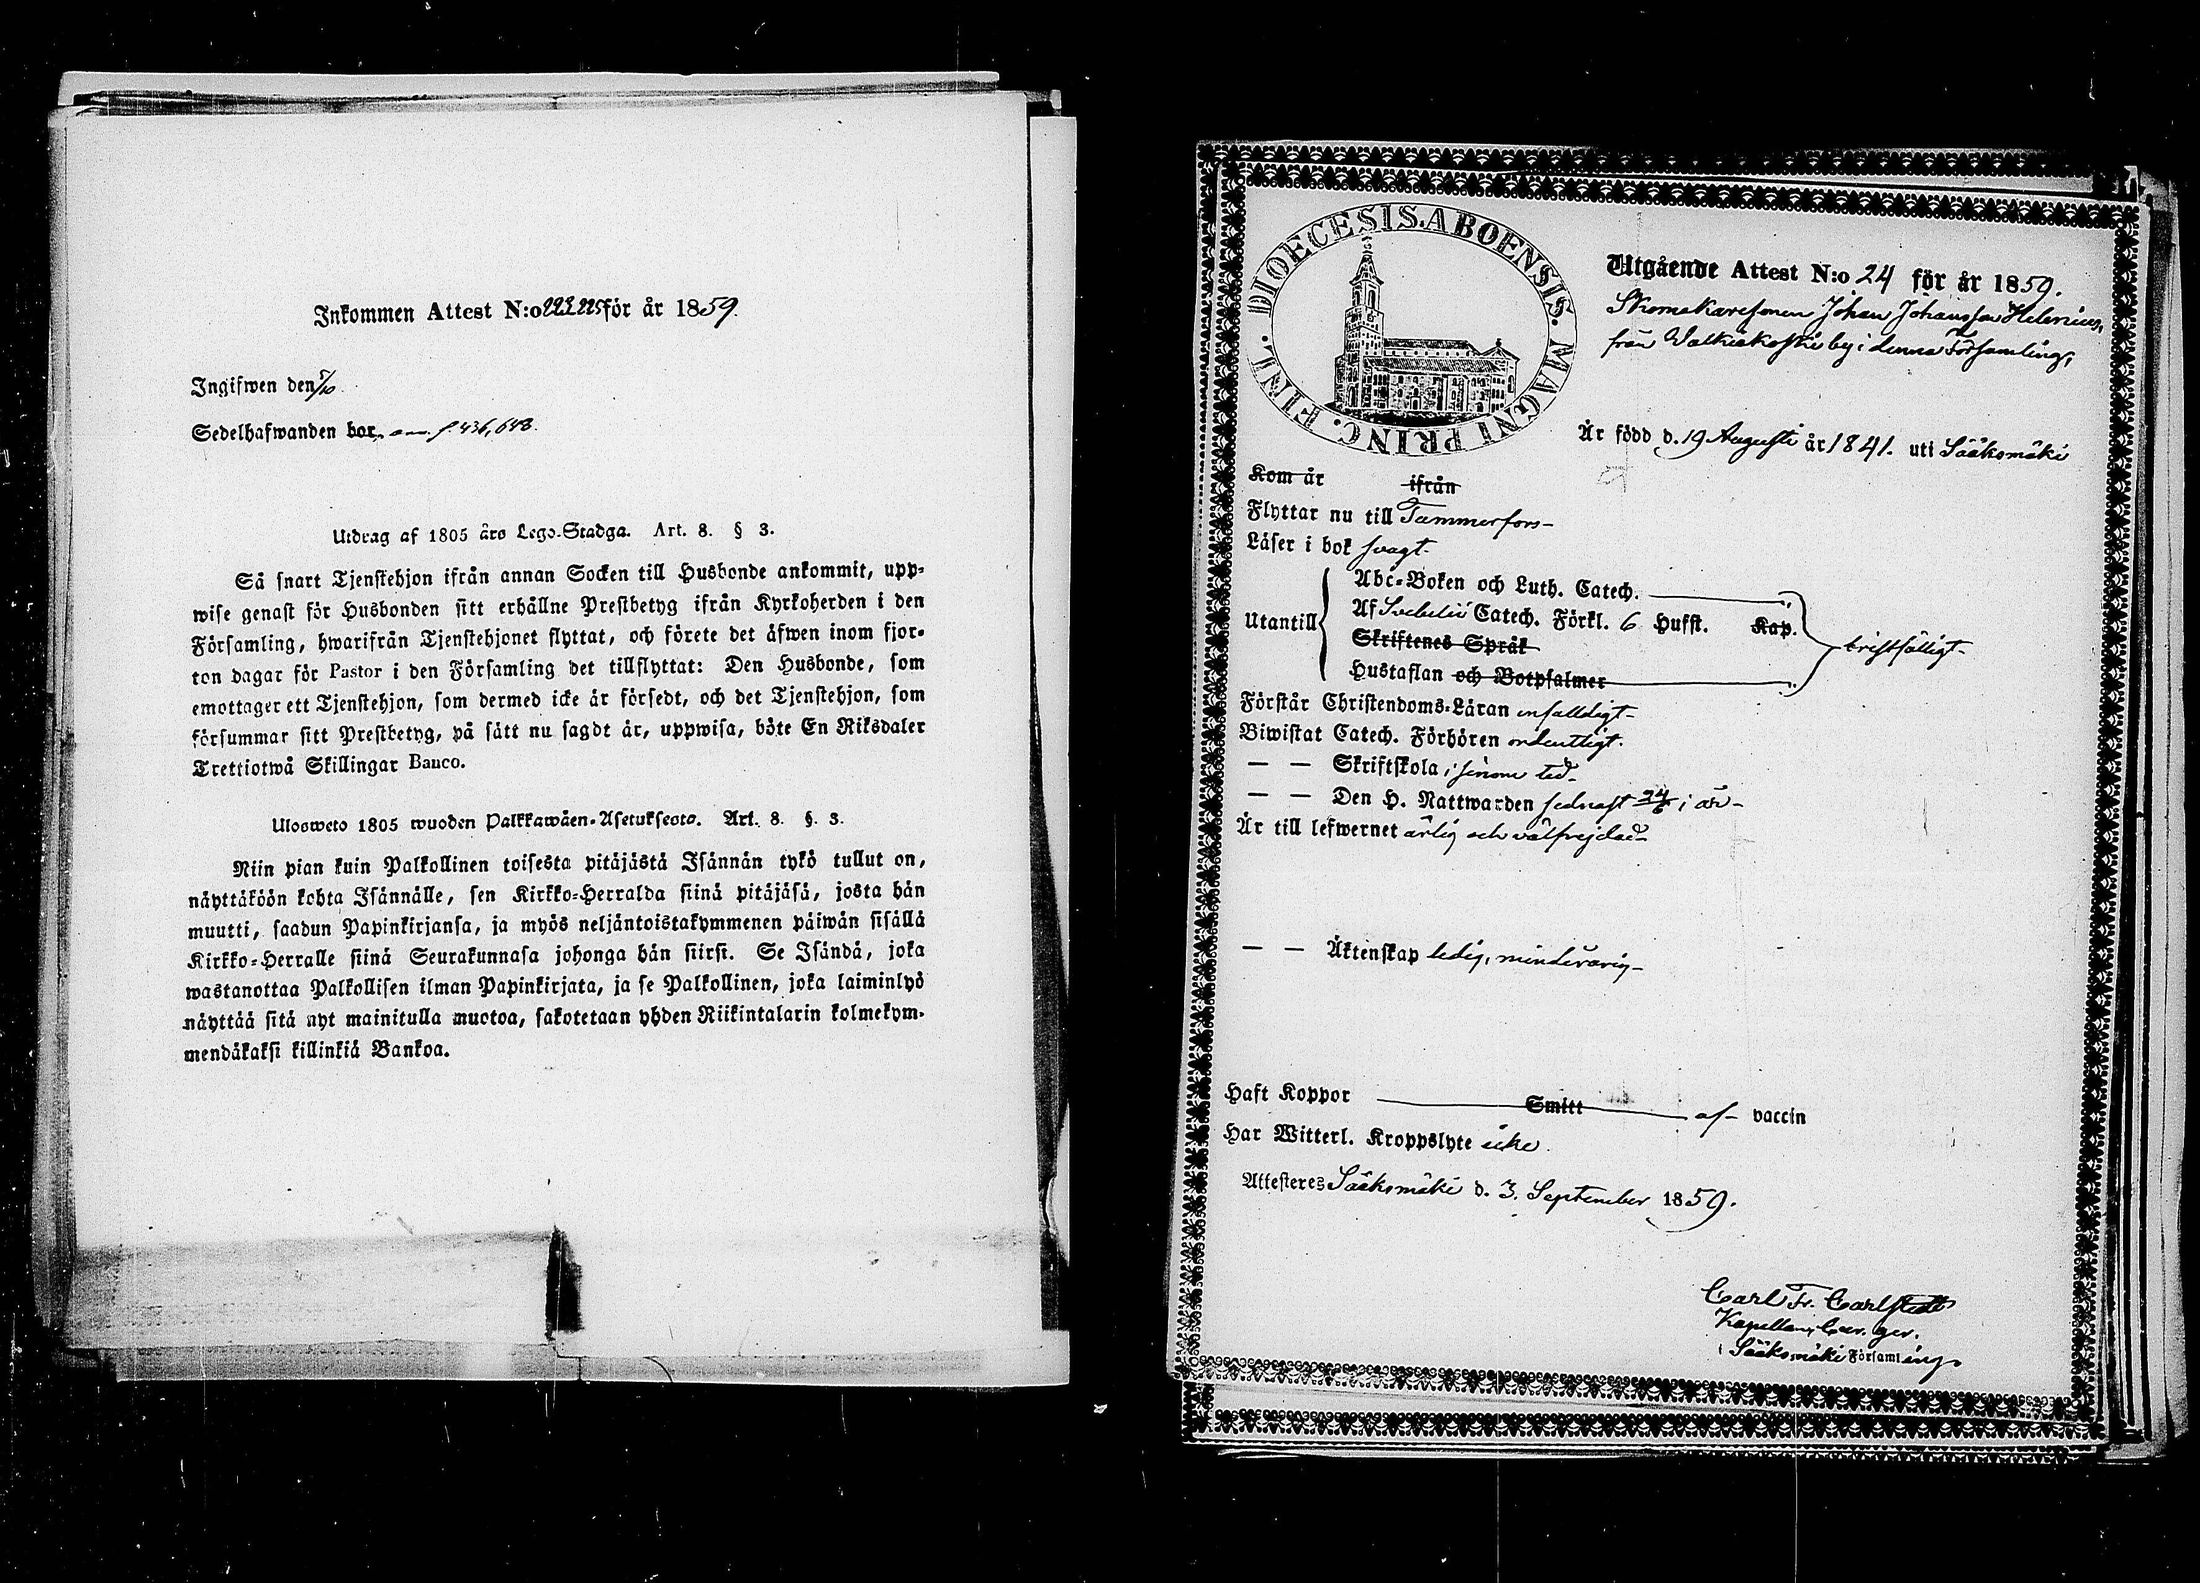 Inkommen Attest N:o 223.225 för år 1859.
Ingifwen den 7/10
Sedelhafwanden bor, ann. f. 436, 648.
Utdrag af 1805 års Lego-Stadga. Art. 8. § 3.
Så snart Tjenstehjon ifrån annan Socken till Husbonde ankommit, upp-
wise genast för Husbonden sitt erhållne Prestbetyg ifrån Kyrkoherden i den
Församling, hwarifrån Tjenstehjonet flyttat, och förete det äfwen inom fjor-
ton dagar för Pastor i den Församling det tillflyttat: Den Husbonde, som
emottager ett Tjenstehjon, som dermed icke är försedt, och det Tjenstehjon, som
försummar sitt Prestbetyg, på sätt nu sagdt är, uppwisa, böte En Riksdaler
Trettiotwå Skillingar Banco.
Ulosweto 1805 wuoden Palkkawäen-Asetuksesta. Art. 8. §. 3.
Niin pian kuin Palkollinen toisesta pitäjästä Isännän tykö tullut on,
näyttäköön kohta Isännälle, sen Kirkko-Herralda siinä pitäjäsä, josta hän
muutti, saadun Papinkirjansa, ja myös neljäntoistakymmenen päiwän sisällä
Kirkko-Herralle siinä Seurakunnasa johonga hän siirsi. Se Isändä, joka
wastanottaa Palkollisen ilman Papinkirjata, ja se Palkollinen, joka laiminlyö
näyttää sitä nyt mainitulla muotoa, sakotetaan yhden Riikintalarin kolmekym-
mendäkaksi killinkiä Bankoa.
DIOECESIS. ABOENSIS. MAGNI PRINC. FINL.
Utgående Attest N:o 24 för år 1859.
Skomakaresonen Johan Johansson Helenius,
från Walkiakoski by i denna Församling,
Är född d. 19 Augusti år 1841. uti Sääksmäki
Kom år ifrån
Flyttar nu till Tammerfors-
Läser i bok svagt-
Abc-Boken och Luth. Catech.
Utantill Af Svebelii Catech. Förkl. 6 Hufst. Kap. bristfälligt-
Skriftenes Språk
Hustaflan och Botpsalmer
Förstår Christendoms-Läran enfaldigt-
Biwistat Catech. Förhören ordentligt.
— — Skriftskola i sinom tid-
— — Den H. Nattwarden sednast 24/6 i år-
Är till lefwernet ärlig och välfrejdad-
— — Äktenskap ledig, minderårig-
Haft Koppor Smitt af- vaccin
Har Witterl. Kroppslyte icke
Attesteres Sääksmäki d. 3. September 1859.
Carl Fr. Carlstedt
Kapellan,
i Sääksmäki Församling